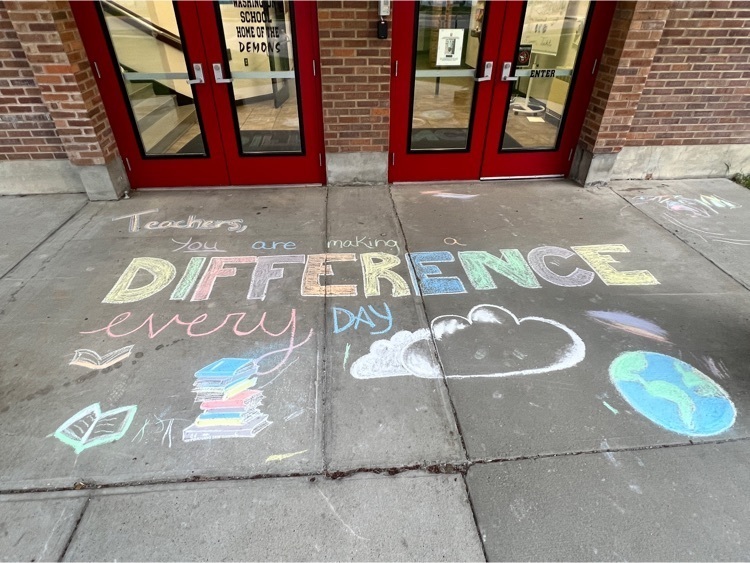 WASHINGTON
SCHOOL
HOME OF THE
DEMONS
ENTER
Teachers,
You are making a
DIFFERENCE
every DAY